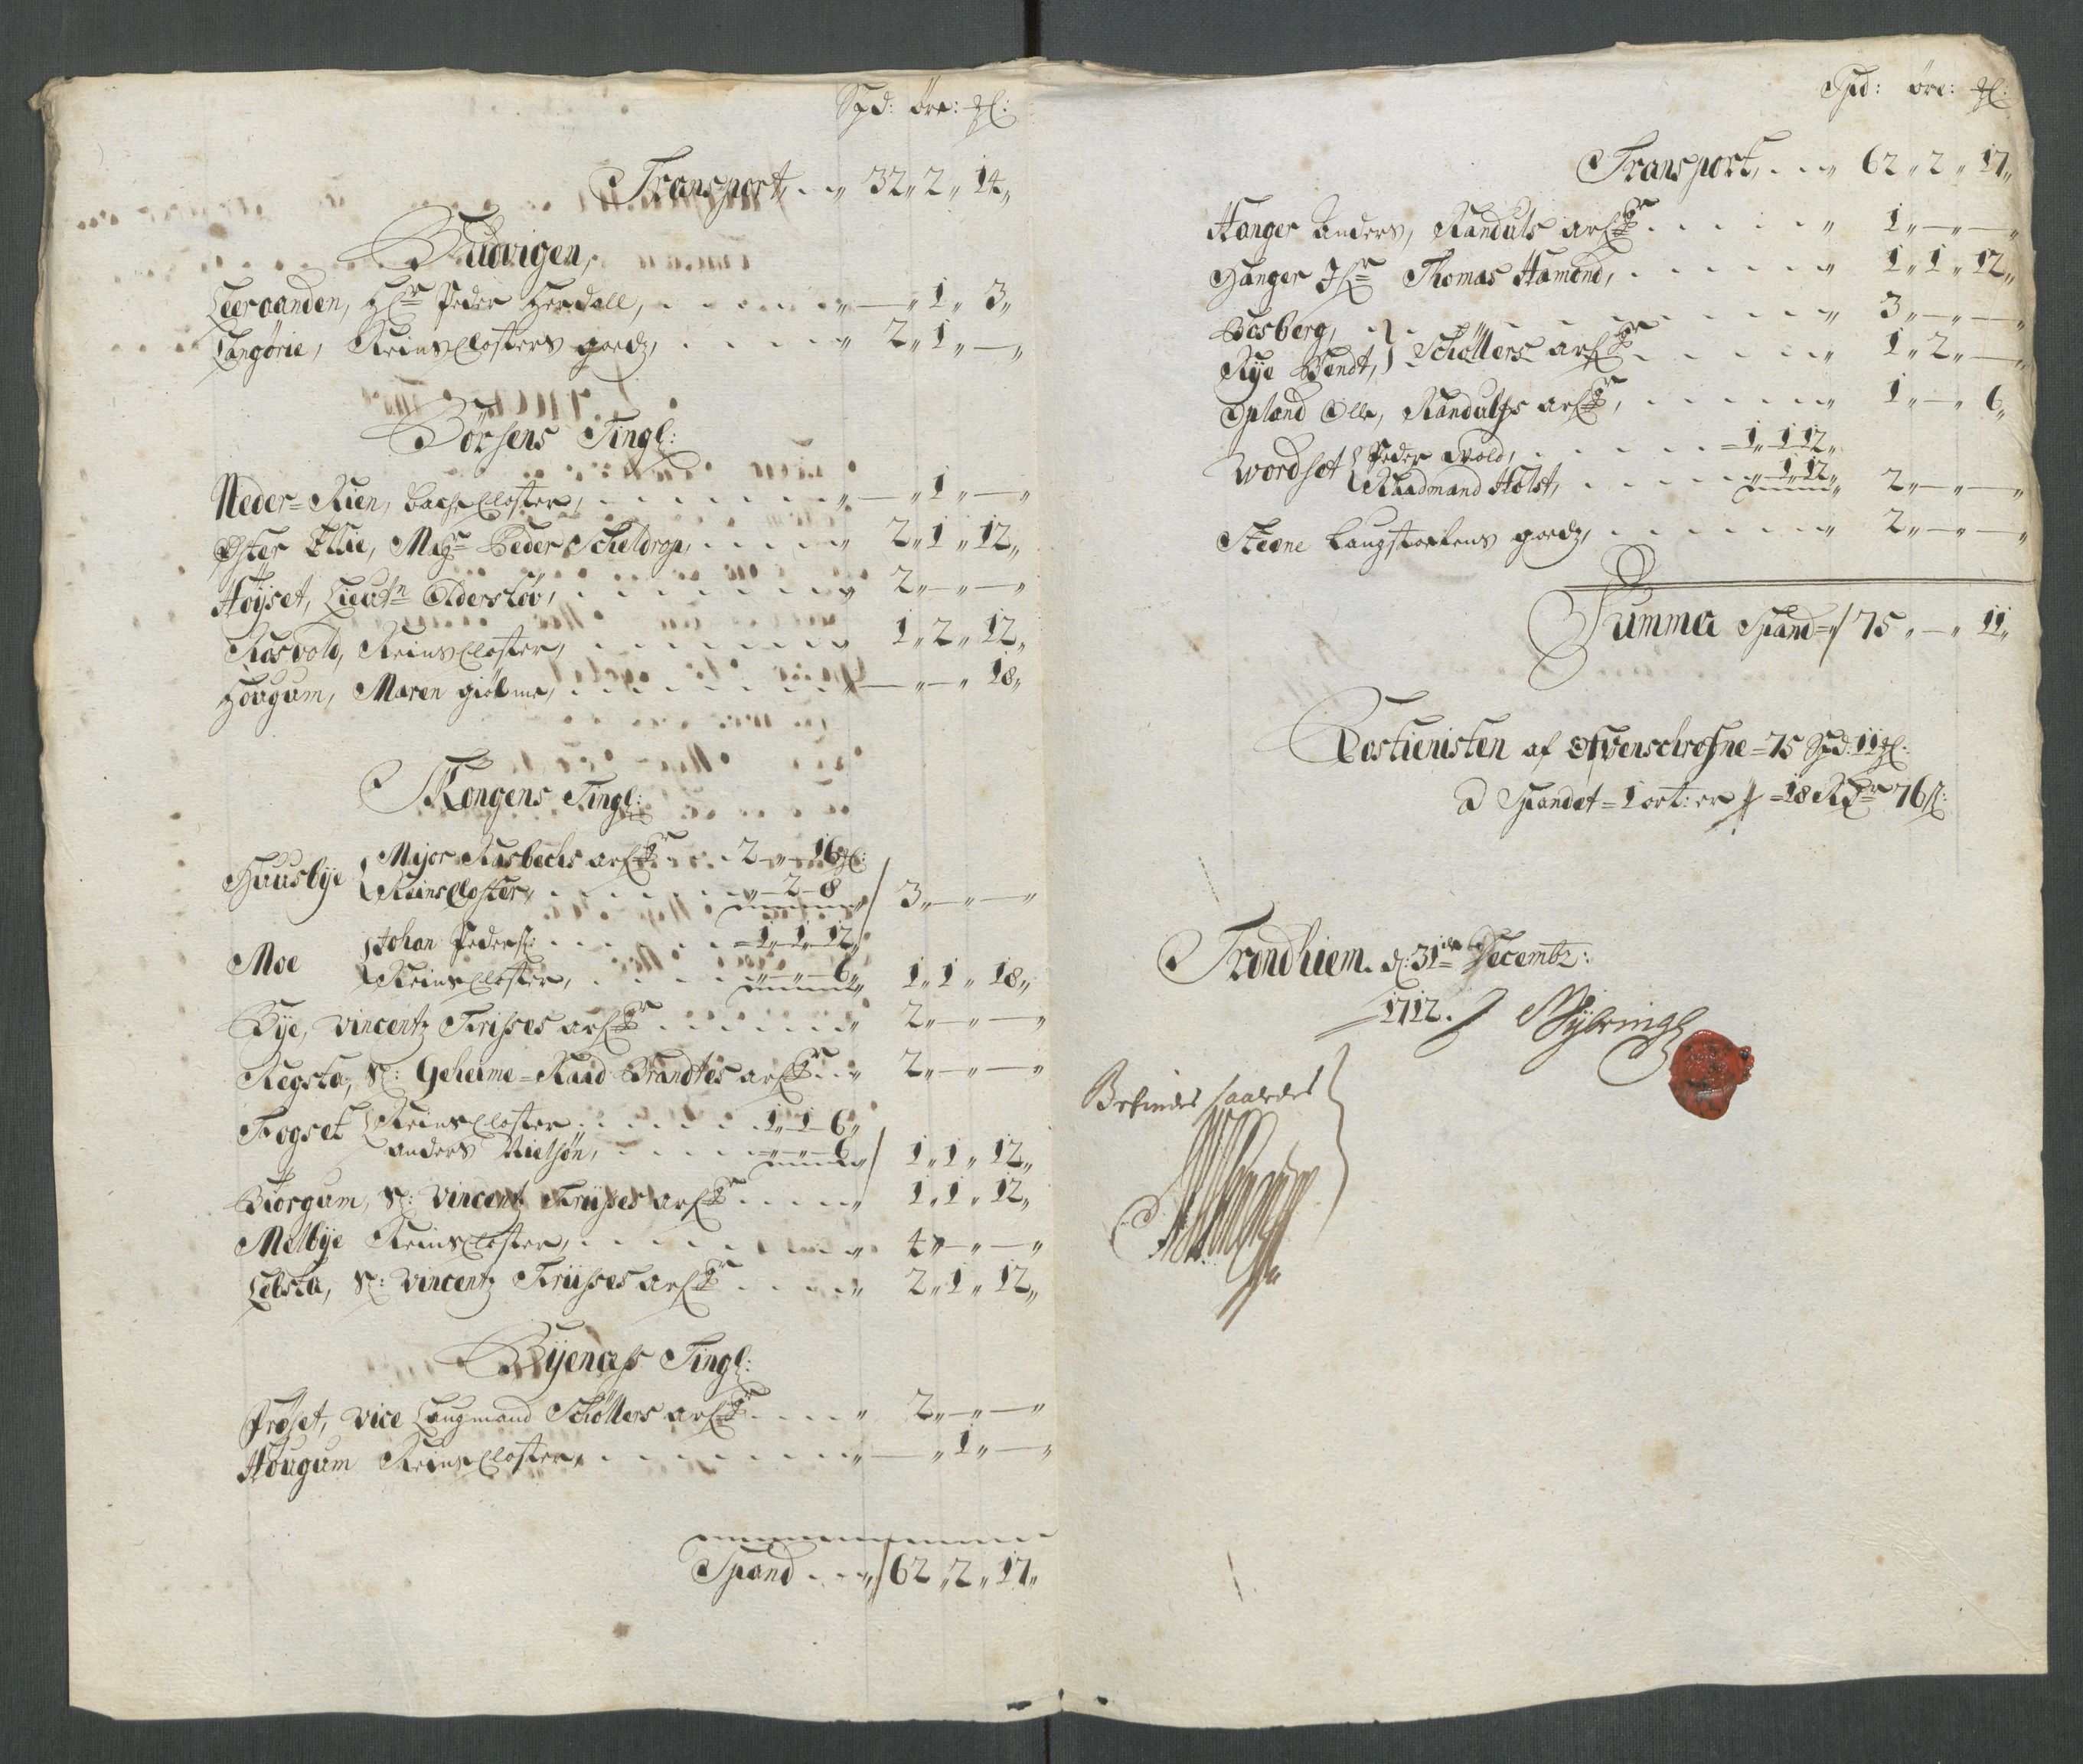 Spd: øre: gl:
Transport, . . „ 32„ 2„ 14„
Budvigen,
Leeraanden, Hr Peder Herdall, . . . . „ — „ 1„ 3„
Langørie, Reins Closters goedz, . . . . „ 2„ 1„ —„
Børsens Tingl:
Neder=Rien, Bache Closter, . . . . „ — „ 1„ —„
Øster Ellie, Magr Peder Scheldrop, . . . . „ 2„ 1„ 12„
Høyset, Lieutn Oldersløv, . . . . „ 2„ —„ —„
Rosvold, Reins Closter, . . . . „ 1„ 2„ 12„
Hougum, Maren giølme, . . . . „ —„ —„ 18„
Mongens Tingl:
Huusbye { Major Rasbechs arfr . . 2 „ — „ 16 gl:
Reins Closter, . . . . „ — 2 — 8 / 3„ —„ —„
Moe { Johan Peders: . . . . = 1„ 1„ 12„
Reins Closter, . . . . „ — „ — 6„ 1„ 1„ 18„
Bye, Vincentz Trises arfr . . . . „ 2„ —„ —„
Regsta, Sl: Geheime=Raad Brandtes arfr . . „ 2„ —„ —„
Fogset { Reins Closter . . . . 1„ 1 6„
anders Nielsøn, . . . . „ — „ — 6„ / 1„ 1„ 12„
Biørgum, Sl: Vincentz Trises arfr . . . . „ 1„ 1„ 12„
Melbye Reins Closter, . . . . „ 4„ —„ —„
Lebsta, Sl: Vincentz Trises arfr . . . . „ 2„ 1„ 12„
Byenæss Tingl:
Prøset, vice Laugmand Schøllers arfr . . . „ 2„ —„ —„
Hougum Reins Closter, . . . . „ — „ 1„ —„
Spand . . „ / 62„ 2„ 17„
Spd: øre: gl:
Transport, . . „ 62„ 2„ 17„
Hanger Anders, Randuls arfr . . . . „ 1„ —„ —„
Hanger Hr Thomas Hamond, . . . . „ 1„ 1„ 12„
Bosberg, } . . . . „ 3„ —„ —„
Rye Bendt, } Schøllers arfr . . . . „ 1„ 2„ —„
Opland Olle, Randulfs arfr, . . . . „ 1„ —„ 6„
Wordset { Peder Wold, . . . . = 1„ 1 12„
Raadmand Holst, . . . . „ „ 1 12„ 2„ —„ —„
Steene Laugstoelens goedz, . . . . „ 2„ —„ —„
Summa Spand = / 75 „ — „ 11„
Bostienisten af = 75 Spd: 11 gl:
a Spandet = 1 ort: er = 18 Rdr 76 s:
Trondhiem. d: 31de Decembr:
1712.
Befindes saaledes